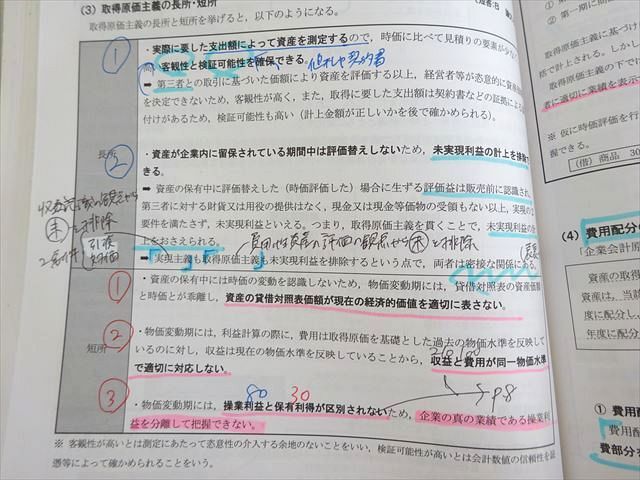 (3) 取得原価主義の長所・短所
取得原価主義の長所と短所を挙げると、以下のようになる。
①
・実際に要した支出額によって資産を測定するので、時価に比べて見積りの要素が少な
客観性と検証可能性を確保できる。
➡ 第三者との取引に基づいた価額により資産を評価する以上、経営者等が恣意的に資産
を決定できないため、客観性が高く、また、取得に要した支出額は契約書などの証拠による
付けがあるため、検証可能性も高い(計上金額が正しいかを後で確かめられる)。
長所
②
・資産が企業内に留保されている期間中は評価替えしないため、未実現利益の計上を排除
きる。
➡ 資産の保有中に評価替えした(時価評価した)場合に生ずる評価益は販売前に認識され、
第三者に対する財貨又は用役の提供はなく、現金又は現金等価物の受領もない以上、実現の2
要件を満たさず、未実現利益といえる。つまり、取得原価主義を貫くことで、未実現利益の計
上をおさえられる。
➡ 実現主義も取得原価主義も未実現利益を排除するという点で、両者は密接な関係にある。
①
・資産の保有中には時価の変動を認識しないため、物価変動期には、貸借対照表の資産価額
と時価とが乖離し、資産の貸借対照表価額が現在の経済的価値を適切に表さない。
短所
②
・物価変動期には、利益計算の際に、費用は取得原価を基礎とした過去の物価水準を反映して
いるのに対し、収益は現在の物価水準を反映していることから、収益と費用が同一物価水準
で適切に対応しない。
80 30
③
・物価変動期には、操業利益と保有利得が区別されないため、企業の真の業績である操業利
益を分離して把握できない。
※ 客観性が高いとは測定にあたって恣意性の介入する余地のないことをいい、検証可能性が高いとは会計数値の信頼性を証
憑等によって確かめられることをいう。
取得原価主義に基
者に適切に業績を表示
※ 仮に時価評価を行
握できる。
(借) 商品 30
(4) 費用配分の
「企業会計原
資産の取得
資産は、当該
度に配分し、
年度に配分し
① 費用
費用配
費部分を